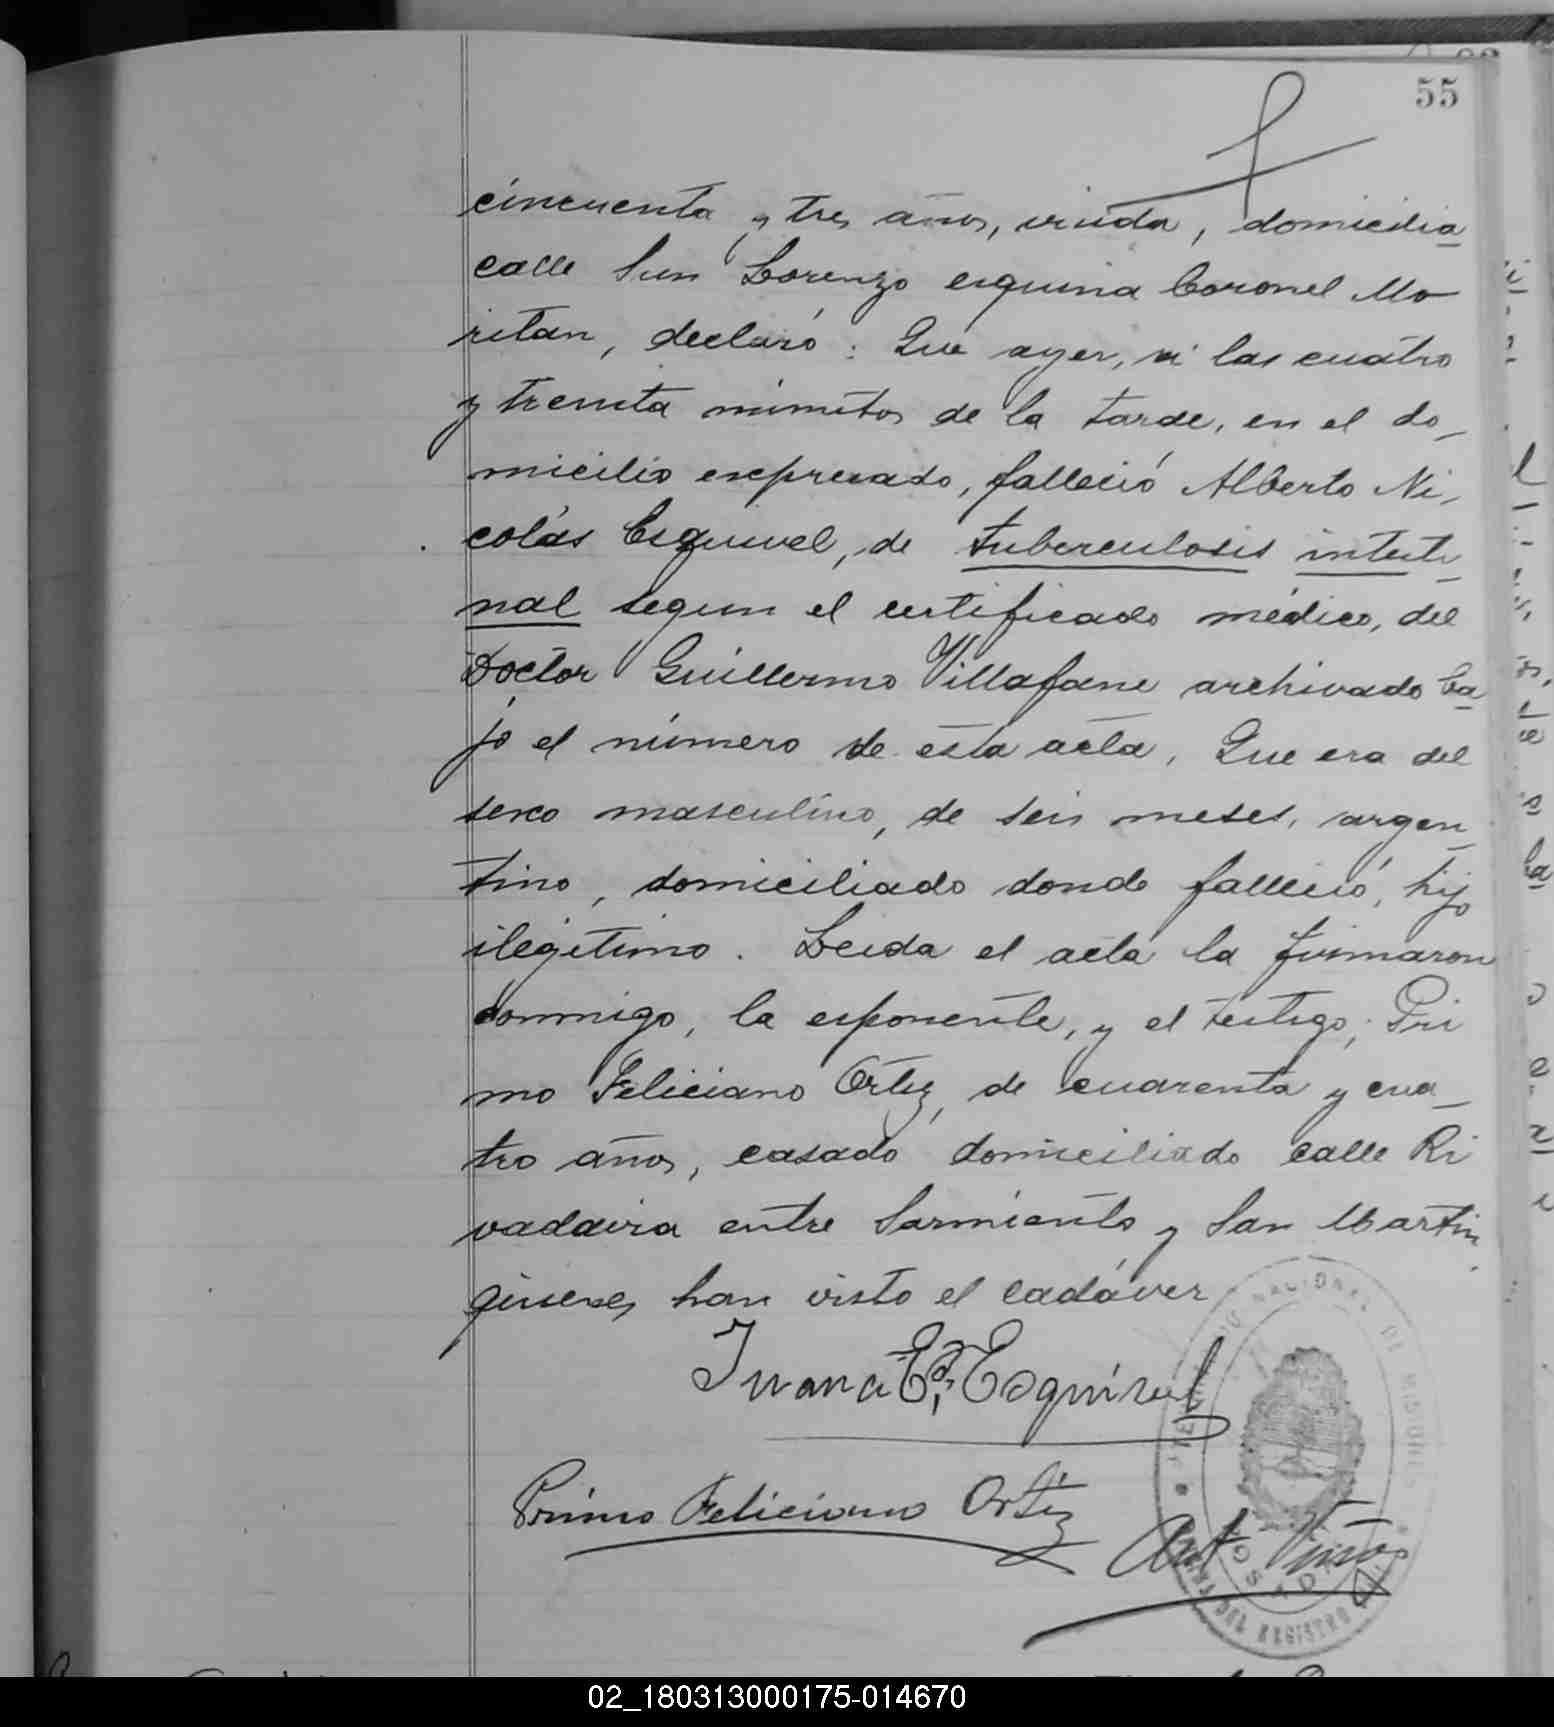 55
cincuenta y tres años, viuda, domicilia
calle San Lorenzo esquina Coronel Mo
ritan, declaró: Que ayer, a las cuatro
y treinta minutos de la tarde, en el do_
micilio expresado, falleció Alberto Ni_
colás Esquivel, de tuberculosis intesti_
nal segun el certificado médico, del
Doctor Guillermo Villafane archivado ba
jo el número de esta acta, Que era del
sexo masculino, de seis meses, argen_
tino, domiciliado donde falleció, hijo
ilegítimo. Leida el acta la firmaron
conmigo, la exponente, y el testigo, Pri
mo Feliciano Ortiz, de cuarenta y cua_
tro años, casado domiciliado calle Ri
vadavia entre Sarmiento y San Martin
quienes han visto el cadáver
Juana E. de Esquivel
Primo Feliciano Ortiz
NACIONAL DE MISIONES
POSADAS
DEL REGISTRO
02_180313000175-014670